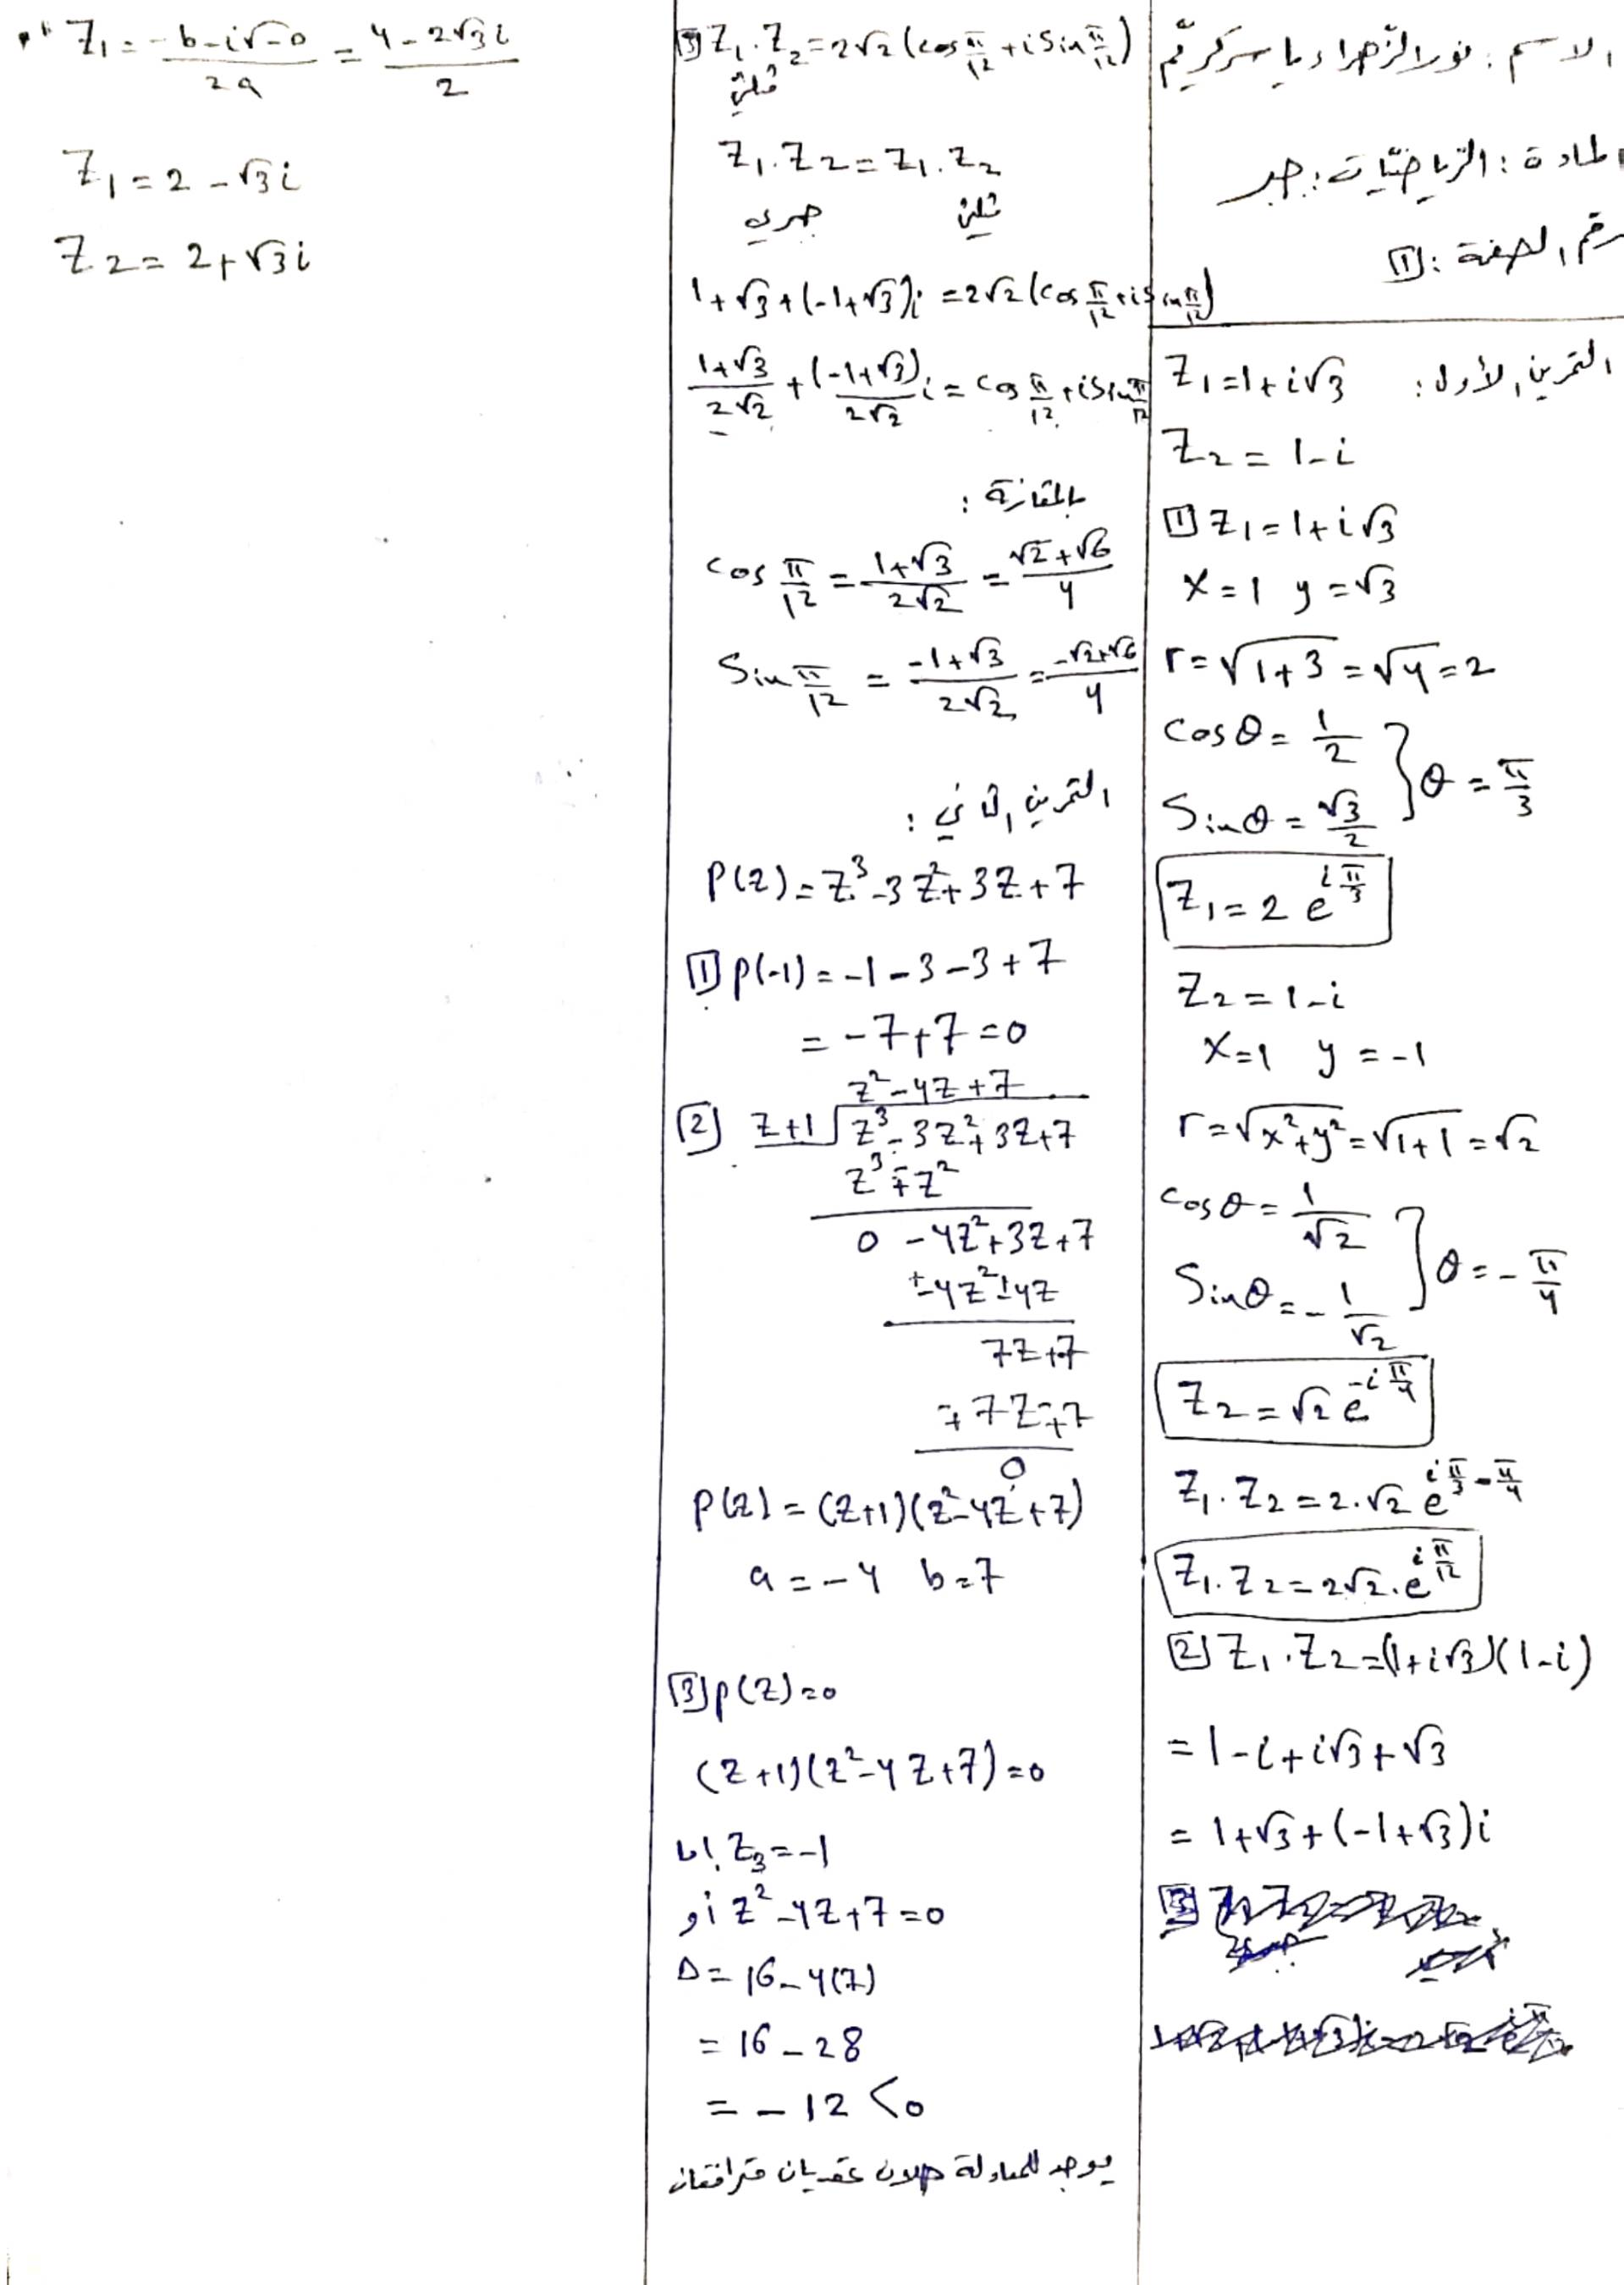 الاسم: نور الزهراء ياسر كريّم
المادة: الرياضيّات: جبر
رقم الصفحة: [1]
التمرين الأول: Z₁=1+i√3
Z₂=1-i
[1] Z₁=1+i√3
x=1 y=√3
r=√(1+3)=√4=2
cosθ=1/2
sinθ=√3/2 } θ=π/3
Z₁=2e^(iπ/3)
Z₂=1-i
x=1 y=-1
r=√(x²+y²)=√(1+1)=√2
cosθ=1/√2
sinθ=-1/√2 } θ=-π/4
Z₂=√2e^(-iπ/4)
Z₁.Z₂=2.√2e^(iπ/3-π/4)
Z₁.Z₂=2√2.e^(iπ/12)
[2] Z₁.Z₂=(1+i√3)(1-i)
=1-i+i√3+√3
=1+√3+(-1+√3)i
[3] Z₁.Z₂=2√2(cos π/12+i sin π/12)
مثلثي
Z₁.Z₂=Z₁.Z₂
جبري مثلثي
1+√3+(-1+√3)i=2√2(cos π/12+i sin π/12)
(1+√3)/(2√2)+(-1+√3)/(2√2)i=cos π/12+i sin π/12
بالمقارنة:
cos π/12=(1+√3)/(2√2)=(√2+√6)/4
sin π/12=(-1+√3)/(2√2)=(-√2+√6)/4
التمرين الثاني:
P(z)=z³-3z²+3z+7
[1] P(-1)=-1-3-3+7
=-7+7=0
z²-4z+7
[2] z+1 z³-3z²+3z+7
z³∓z²
0 -4z²+3z+7
±4z²±4z
7z+7
∓7z∓7
0
P(z)=(z+1)(z²-4z+7)
a=-4 b=7
[3] P(z)=0
(z+1)(z²-4z+7)=0
إما Z₃=-1
أو z²-4z+7=0
Δ=16-4(7)
=16-28
=-12<0
يوجد للمعادلة حلان عقديان مترافقان
Z₁=(-b-i√-Δ)/2a=(4-2√3i)/2
Z₁=2-√3i
Z₂=2+√3i